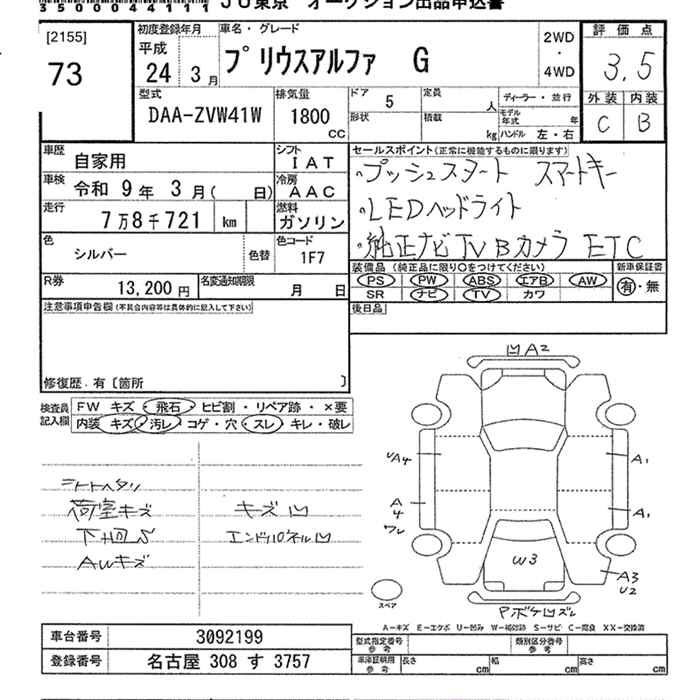 35000441111 JU東京 オークション出品申込書
[2155]
73
初度登録年月
平成 24年 3月
車名・グレード
プリウスアルファ G
2WD
・
4WD
評価点
3.5
外装 内装
C B
型式
DAA-ZVW41W
排気量
1800 CC
ドア 5
定員 人
ディーラー・並行
形状
積載 kg
モデル年式 年
ハンドル 左・右
車歴
自家用
シフト
IAT
車検
令和 9年 3月( 日)
冷房
AAC
走行
7万8千721 km
燃料
ガソリン
色
シルバー
色替
色コード
1F7
R券
13,200 円
名変通知期限
月 日
セールスポイント(正常に機能するものに限ります)
・プッシュスタート スマートキー
・LEDヘッドライト
・純正ナビ TV Bカメラ ETC
装備品(純正品に限り○をつけてください)
PS PW ABS エアB AW
SR ナビ TV カワ
新車保証書
有・無
後日品
注意事項申告欄(不具合内容等は具体的に記入して下さい)
修復歴.有〔箇所 〕
検査員記入欄
FW キズ・飛石・ヒビ割・リペア跡・×要
内装 キズ・汚レ・コゲ・穴・スレ・キレ・破レ
シートヘタリ
荷室キズ
キズ凹
下廻S
エンドパネル凹
AWキズ
凹A2
UA4
A1
A
4
ワレ
A1
W3
A3
U2
スペア
PボケUズレ
A－キズ E－エクボ U－凹み W－補修跡 S－サビ C－腐食 XX－交換済
車台番号
3092199
登録番号
名古屋 308 す 3757
型式指定番号 参考
類別区分番号 参考
車庫証明用 参考
長さ cm
幅 cm
高さ cm